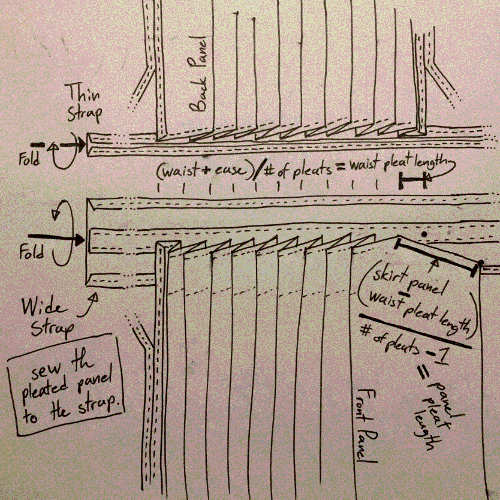 Back Panel
Thin
Strap
Fold
(waist + ease) / # of pleats = waist pleat length
Fold
Wide
Strap
sew th
pleated panel
to the strap.
(skirt panel
- waist pleat length)
# of pleats - 1
= panel
pleat
length
Front Panel